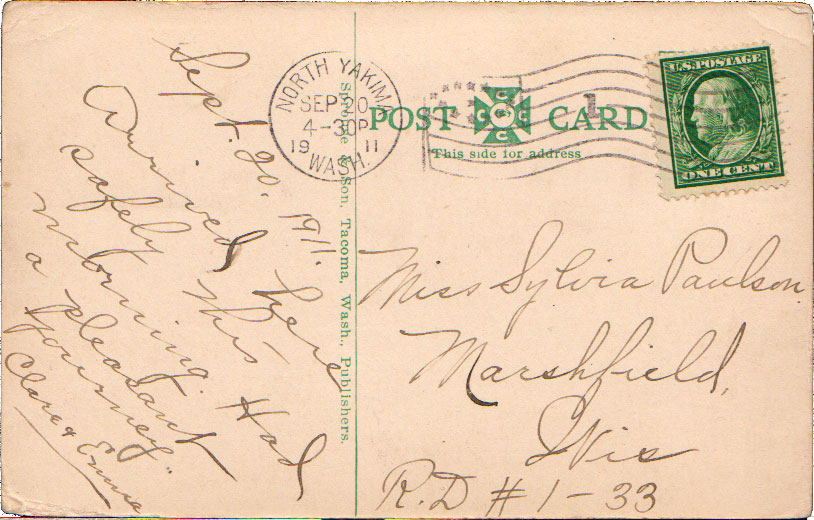 Sept. 20, 1911.
Arrived here
safely this
morning. Had
a pleasant
journey."
Clara & Emma
NORTH YAKIMA
SEP 20
4-30P
19 11
WASH.
POST CARD
This side for address
U.S. POSTAGE
ONE CENT
1
& Son, Tacoma, Wash., Publishers.
Miss Sylvia Paulson
Marshfield,
Wis
R.D # 1-33